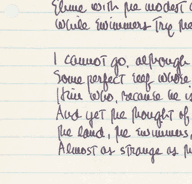 Shine with the modest
While swimmers try the
I cannot go, although
Some perfect reef whose
Him who, because he is
And yet the thought of
the land, the swimmers,
Almost as strange as